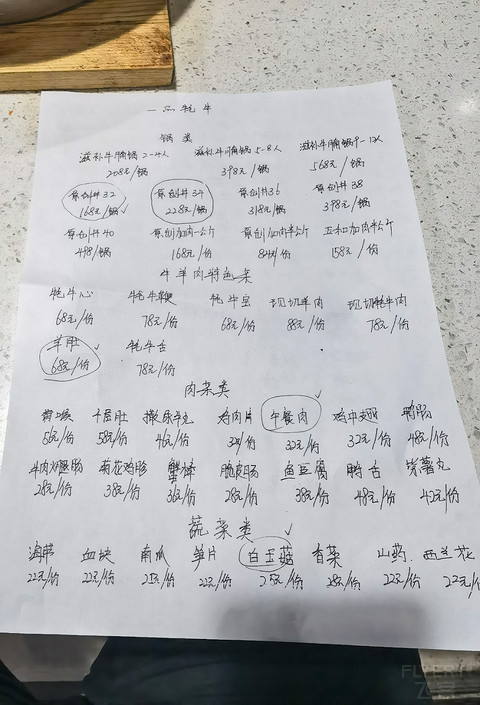 一品牦牛
锅类
滋补牛腩锅2-4人 滋补牛腩锅5-8人 滋补牛腩锅9-12人
208元/锅 398元/锅 568元/锅
原创井32 原创井34 原创井36 原创井38
168元/锅 228元/锅 318元/锅 398元/锅
原创井40 原创加肉一公斤 原创加肉半公斤 五和加肉半公斤
498/锅 168元/份 84元/份 158元/份
牛羊肉特色菜
牦牛心 牦牛鞭 牦牛宝 现切羊肉 现切牦牛肉
68元/份 78元/份 68元/份 88元/份 78元/份
羊肚 牦牛舌
68元/份 78元/份
肉杂类
黄喉 千层肚 撒尿牛丸 鸡肉片 午餐肉 鸡中翅 鸭肠
56元/份 58元/份 46元/份 32元/份 32元/份 32元/份 48元/份
牛肉火腿肠 菊花鸡胗 蟹棒 脆皮肠 鱼豆腐 鸭舌 紫薯丸
28元/份 38元/份 36元/份 28元/份 38元/份 48元/份 42元/份
蔬菜类
海带 血块 南瓜 笋片 白玉菇 香菜 山药 西兰花
22元/份 22元/份 21元/份 22元/份 25元/份 28元/份 22元/份 22元/份
FLYERT
飞客